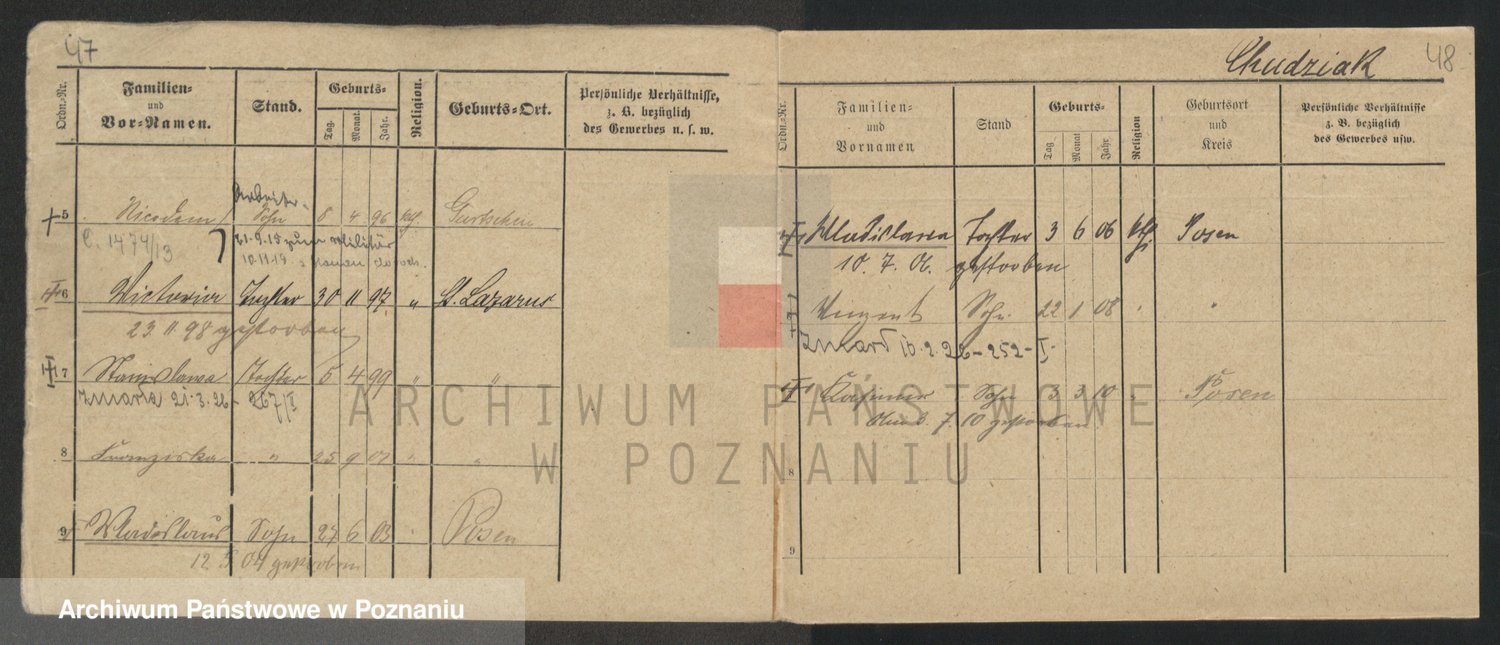 47
Ordn.-Nr.
Familien-
und
Vor-Namen.
Stand.
Geburts-
Tag.
Monat.
Jahr.
Religion.
Geburts-Ort.
Persönliche Verhältnisse,
z. B. bezüglich
des Gewerbes u. s. w.
Arbeiter
5 Nicodem Sohn 8 4 96 kth. Gurtschin
C. 1474/13 21.9.15 zum Militär
10.11.19
6 Victoria Tochter 30 11 97 " St. Lazarus
23. 11. 98 gestorben
7 Stanislawa Tochter 5 4 99 " "
zmarła 21.3.26 - 267/I
8 Franziska " 25 9 01 " "
9 Wladislaus Sohn 27 6 03 " Posen
12. 5. 04 gestorben
Chudziak 48
Ordn.-Nr.
Familien-
und
Vornamen
Stand
Geburts-
Tag
Monat
Jahr
Religion
Geburtsort
und
Kreis
Persönliche Verhältnisse
z. B. bezüglich
des Gewerbes usw.
Wladislawa Tochter 3 6 06 kth. Posen
10. 7. 06. gestorben
Vinzent Sohn 22 1 08 " "
zmarł 10.2.26-252-I.
Casimir Sohn 3 3 10 " Posen
7. 10 gestorben
8
9
ARCHIWUM PAŃSTWOWE
W POZNANIU
Archiwum Państwowe w Poznaniu